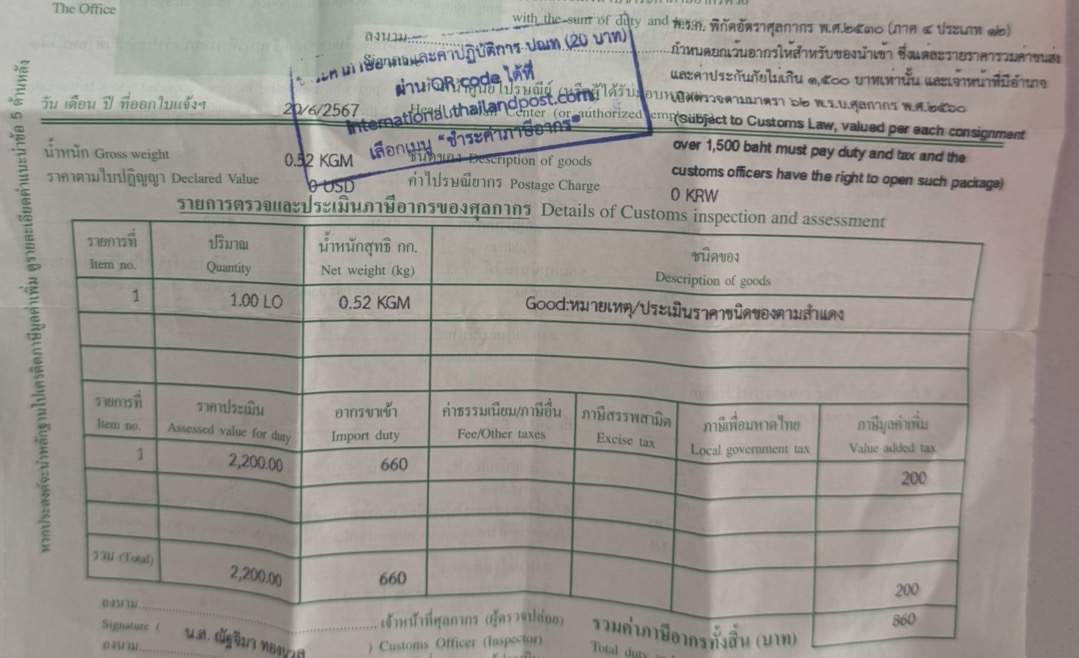 The Office
with the sum of duty and
พ.ร.ก. พิกัดอัตราศุลกากร พ.ศ.๒๕๓๐ (ภาค ๔ ประเภท ๑๒)
กำหนดยกเว้นอากรให้สำหรับของนำเข้า ซึ่งแต่ละรายราคารวมค่าขนส่ง
และค่าประกันภัยไม่เกิน ๑,๕๐๐ บาทเท่านั้น และเจ้าหน้าที่มีอำนาจ
เปิดตรวจตามมาตรา ๖๒ พ.ร.บ.ศุลกากร พ.ศ.๒๕๖๐
(Subject to Customs Law, valued per each consignment
over 1,500 baht must pay duty and tax and the
customs officers have the right to open such package)
ลงนาม
ภาษีอากรและค่าปฏิบัติการ ปณท (20 บาท)
ผ่าน QR code ได้ที่
international.thailandpost.com
เลือกเมนู "ชำระค่าภาษีอากร"
วัน เดือน ปี ที่ออกใบแจ้งฯ 20/6/2567
Center (or authorized
น้ำหนัก Gross weight 0.52 KGM ชนิดของ Description of goods
ราคาตามใบปฏิญญา Declared Value 0 USD ค่าไปรษณียากร Postage Charge 0 KRW
รายการตรวจและประเมินภาษีอากรของศุลกากร Details of Customs inspection and assessment
รายการที่ ปริมาณ น้ำหนักสุทธิ กก. ชนิดของ
Item no. Quantity Net weight (kg) Description of goods
1 1.00 LO 0.52 KGM Good:หมายเหตุ/ประเมินราคาชนิดของตามสำแดง
รายการที่ ราคาประเมิน อากรขาเข้า ค่าธรรมเนียม/ภาษีอื่น ภาษีสรรพสามิต ภาษีเพื่อมหาดไทย ภาษีมูลค่าเพิ่ม
Item no. Assessed value for duty Import duty Fee/Other taxes Excise tax Local government tax Value added tax
1 2,200.00 660 200
รวม (Total) 2,200.00 660 200
ลงนาม เจ้าหน้าที่ศุลกากร (ผู้ตรวจปล่อย) รวมค่าภาษีอากรทั้งสิ้น (บาท) 860
Signature ( น.ส. ณัฐจิมา ) Customs Officer (Inspector) Total duty
ลงนาม
หากประสงค์จะนำหลักฐานไปเครดิตภาษีมูลค่าเพิ่ม ดูรายละเอียดคำแนะนำข้อ 5 ด้านหลัง